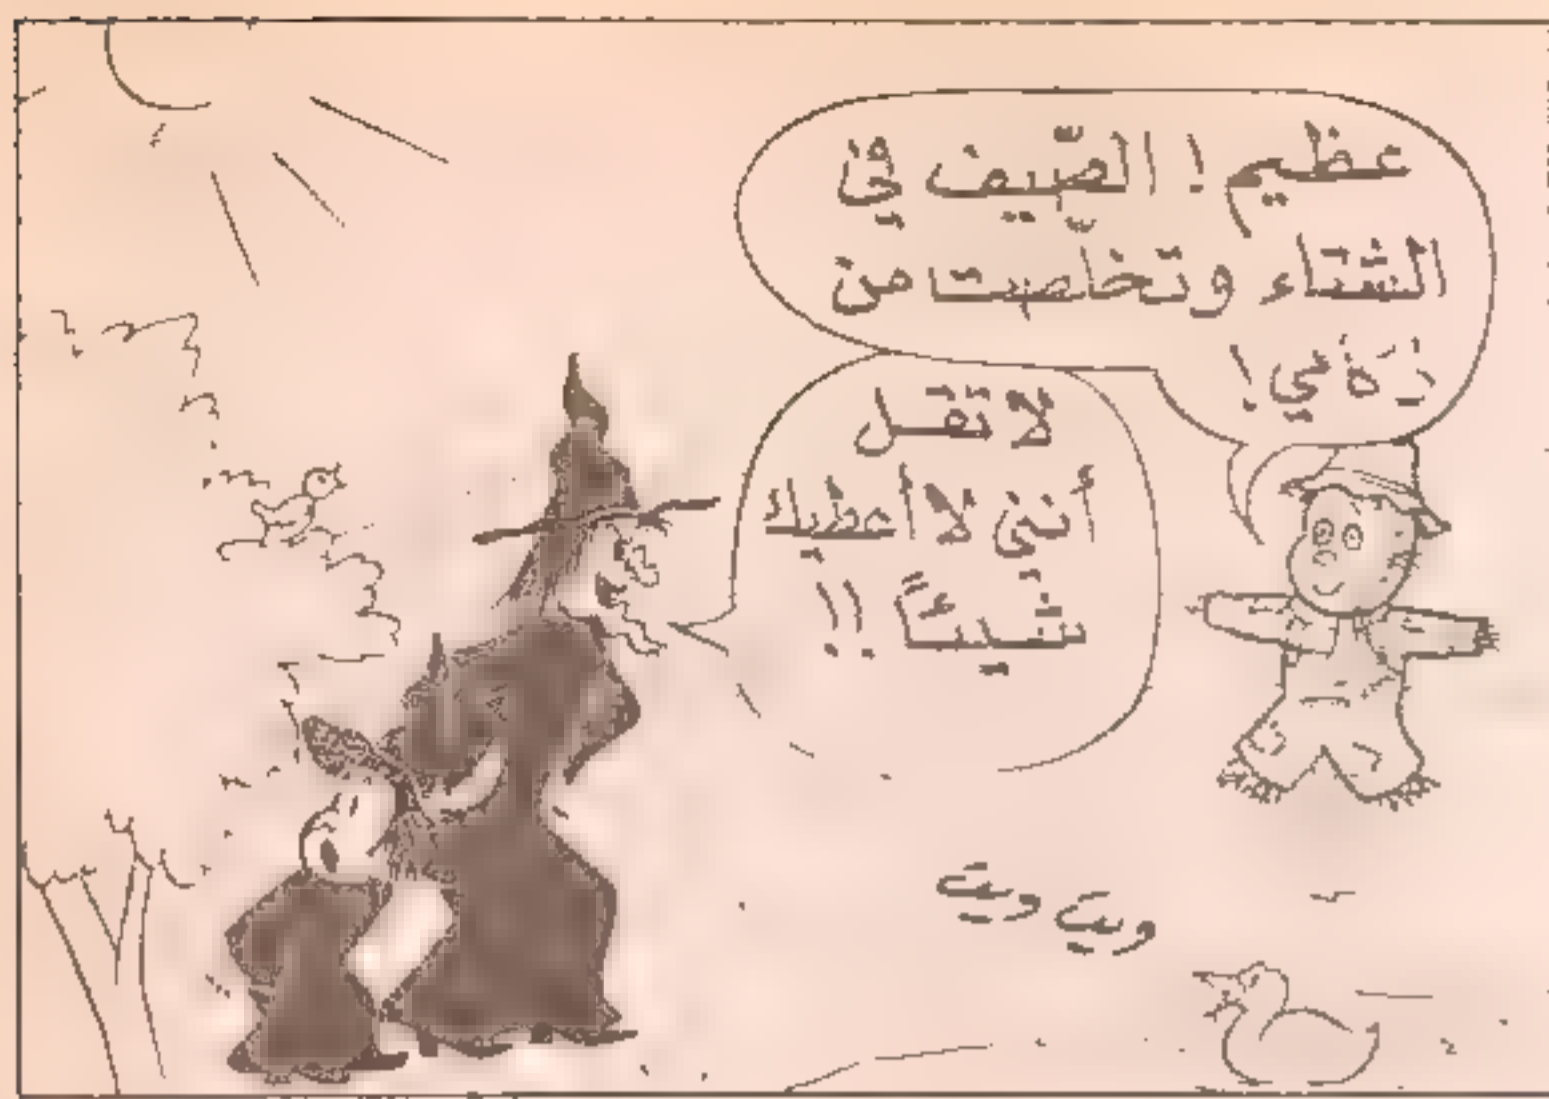 عظيم! الصّيف في
الشتاء وتخلّصت من
زكامي!
لا تقل
أنني لا أعطيك
شيئاً!!
ويت ويت